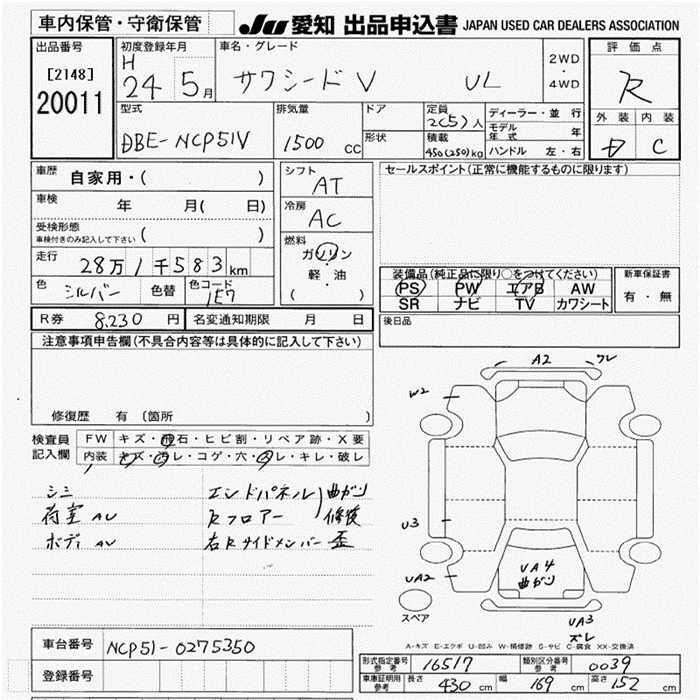 車内保管・守衛保管
JU 愛知 出品申込書 JAPAN USED CAR DEALERS ASSOCIATION
出品番号
[2148]
20011
初度登録年月
H
24年5月
車名・グレード
サクシードV UL
2WD
・
4WD
評価点
R
外装 内装
D C
型式
DBE-NCP51V
排気量
1500 CC
ドア
形状
定員
2(5)人
積載
450(250)kg
ディーラー・並行
モデル年式 年
ハンドル 左・右
車歴
自家用・( )
車検
年 月( 日)
受検形態
車検付きのみ記入して下さい ( )
走行
28万1千583km
色
シルバー
色替
色コード
1E7
シフト
AT
冷房
AC
燃料
ガソリン
・
軽・油
( )
セールスポイント(正常に機能するものに限ります)
装備品(純正品に限り○をつけてください)
PS PW エアB AW
SR ナビ TV カワシート
新車保証書
有・無
R券 8,230円 名変通知期限 月 日
後日品
注意事項申告欄(不具合内容等は具体的に記入して下さい)
修復歴 有(箇所
検査員
記入欄
FW キズ・飛石・ヒビ割・リペア跡・X要
内装 キズ・ヨゴレ・コゲ・穴・スレ・キレ・破レ
シミ エンドパネル 曲がり
荷室 AU Rフロアー 修復
ボディ AU 右Rサイドメンバー 歪
A2 ワレ
W2
U3
UA2
UA4
曲がり
UA3
ズレ
スペア
A-キズ E-エクボ U-凹み W-補修跡 S-サビ C-腐食 XX-交換済
車台番号 NCP51-0275350
登録番号
形式指定番号
参考 16517
類別区分番号
参考 0039
車庫証明用
参考 長さ 430cm 幅 169cm 高さ 152cm